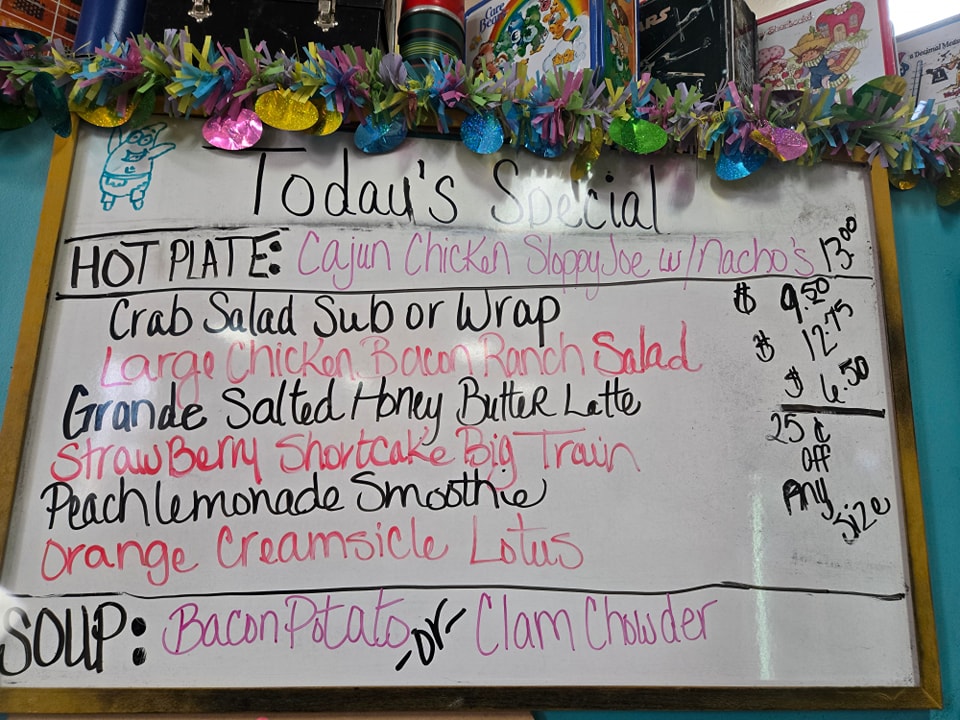 Care Bears
a Decimal
Today's Special
HOT PLATE: Cajun Chicken Sloppy Joe w/ Nacho's 13.00
Crab Salad Sub or Wrap $ 9.50
Large Chicken Bacon Ranch Salad $ 12.75
Grande Salted Honey Butter Latte $ 6.50
StrawBerry Shortcake Big Train 25¢
Off
Peach Lemonade Smoothie Any
Size
Orange Creamsicle Lotus
SOUP: Bacon Potato -or- Clam Chowder